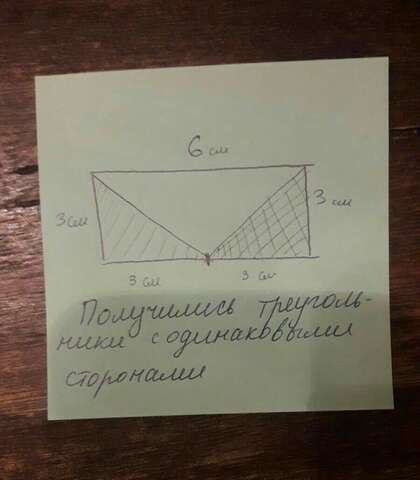 6 см
3 см
3 см
3 см
3 см
Получились треуголь-
ники с одинаковыми
сторонами